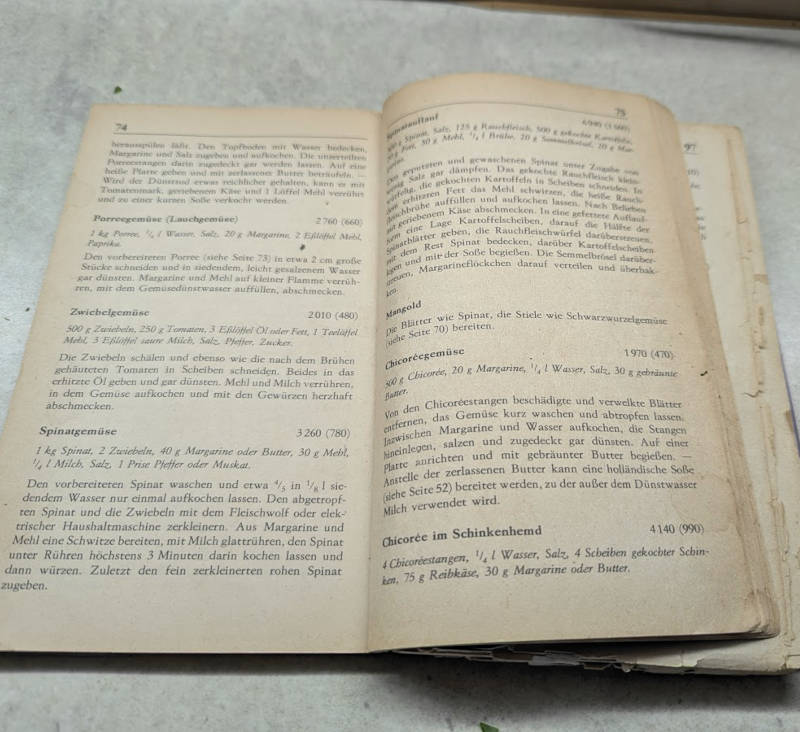 74
herausspülen läßt. Den Topfboden mit Wasser bedecken,
Margarine und Salz zugeben und aufkochen. Die unzerteilten
Porreestangen darin zugedeckt gar werden lassen. Auf eine
heiße Platte geben und mit zerlassener Butter beträufeln. —
Wird der Dünstsud etwas reichlicher gehalten, kann er mit
Tomatenmark, geriebenem Käse und 1 Löffel Mehl verrührt
und zu einer kurzen Soße verkocht werden.
Porreegemüse (Lauchgemüse) 2 760 (660)
1 kg Porree, 1/4 l Wasser, Salz, 20 g Margarine, 2 Eßlöffel Mehl,
Paprika.
Den vorbereiteten Porree (siehe Seite 73) in etwa 2 cm große
Stücke schneiden und in siedendem, leicht gesalzenem Wasser
gar dünsten. Margarine und Mehl auf kleiner Flamme verrüh-
ren, mit dem Gemüsedünstwasser auffüllen, abschmecken.
Zwiebelgemüse 2 010 (480)
500 g Zwiebeln, 250 g Tomaten, 3 Eßlöffel Öl oder Fett, 1 Teelöffel
Mehl, 3 Eßlöffel saure Milch, Salz, Pfeffer, Zucker.
Die Zwiebeln schälen und ebenso wie die nach dem Brühen
gehäuteten Tomaten in Scheiben schneiden. Beides in das
erhitzte Öl geben und gar dünsten. Mehl und Milch verrühren,
in dem Gemüse aufkochen und mit den Gewürzen herzhaft
abschmecken.
Spinatgemüse 3 260 (780)
1 kg Spinat, 2 Zwiebeln, 40 g Margarine oder Butter, 30 g Mehl,
1/4 l Milch, Salz, 1 Prise Pfeffer oder Muskat.
Den vorbereiteten Spinat waschen und etwa 4/5 in 1/8 l sie-
dendem Wasser nur einmal aufkochen lassen. Den abgetropf-
ten Spinat und die Zwiebeln mit dem Fleischwolf oder elek-
trischer Haushaltmaschine zerkleinern. Aus Margarine und
Mehl eine Schwitze bereiten, mit Milch glattrühren, den Spinat
unter Rühren höchstens 3 Minuten darin kochen lassen und
dann würzen. Zuletzt den fein zerkleinerten rohen Spinat
zugeben.
75
Spinatauflauf
g Spinat, Salz, 125 g Rauchfleisch, 500 g gekochte Kartoffeln,
g Fett, 30 g Mehl, 1/4 l Brühe, 20 g Semmelbrösel, 20 g Mar-
Den geputzten und gewaschenen Spinat unter Zugabe von
wenig Salz gar dämpfen. Das gekochte Rauchfleisch klein-
würfelig, die gekochten Kartoffeln in Scheiben schneiden. In
dem erhitzten Fett das Mehl schwitzen, die heiße Rauch-
fleischbrühe auffüllen und aufkochen lassen. Nach Belieben
mit geriebenem Käse abschmecken. In eine gefettete Auflauf-
form eine Lage Kartoffelscheiben, darauf die Hälfte der
Spinatblätter geben, die Rauchfleischwürfel darüberstreuen,
mit dem Rest Spinat bedecken, darüber Kartoffelscheiben
legen und mit der Soße begießen. Die Semmelbrösel darüber-
streuen, Margarineflöckchen darauf verteilen und überbak-
ken.
Mangold
Die Blätter wie Spinat, die Stiele wie Schwarzwurzelgemüse
(siehe Seite 70) bereiten.
Chicoréegemüse 1 970 (470)
500 g Chicorée, 20 g Margarine, 1/4 l Wasser, Salz, 30 g gebräunte
Butter.
Von den Chicoréestangen beschädigte und verwelkte Blätter
entfernen, das Gemüse kurz waschen und abtropfen lassen.
Inzwischen Margarine und Wasser aufkochen, die Stangen
hineinlegen, salzen und zugedeckt gar dünsten. Auf einer
Platte anrichten und mit gebräunter Butter begießen. —
Anstelle der zerlassenen Butter kann eine holländische Soße
(siehe Seite 52) bereitet werden, zu der außer dem Dünstwasser
Milch verwendet wird.
Chicorée im Schinkenhemd 4 140 (990)
4 Chicoréestangen, 1/4 l Wasser, Salz, 4 Scheiben gekochter Schin-
ken, 75 g Reibkäse, 30 g Margarine oder Butter.
97